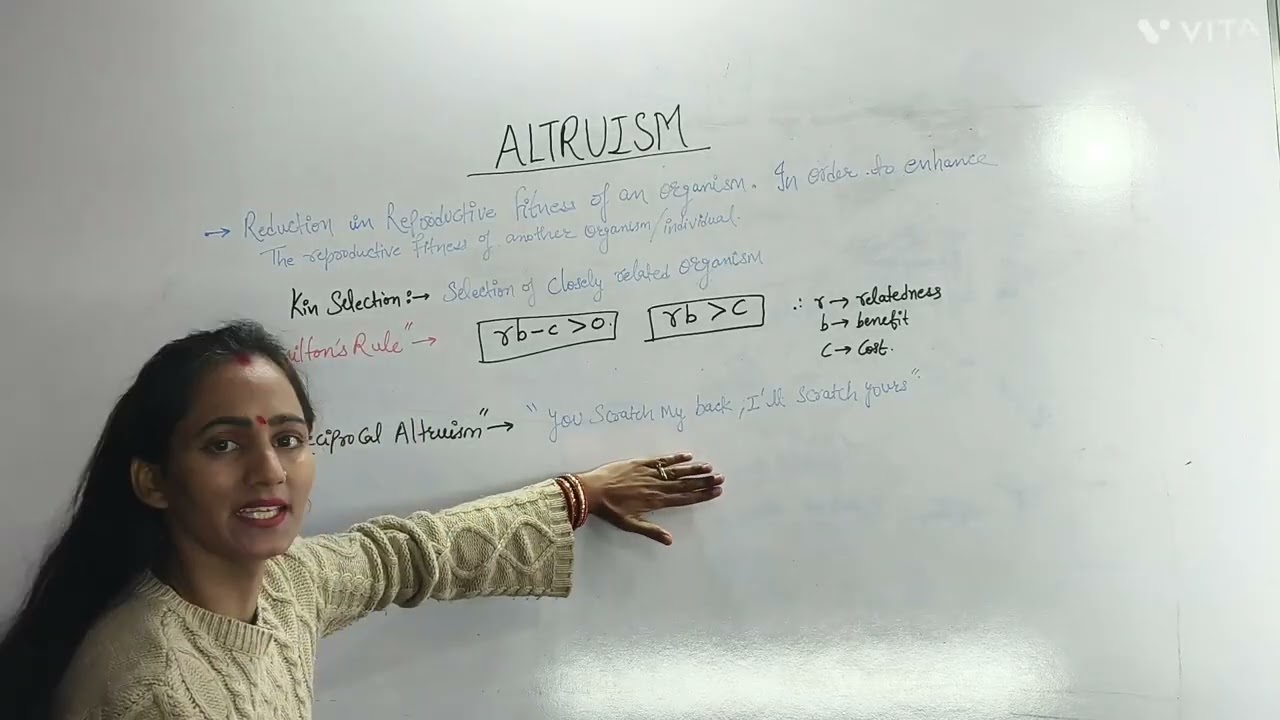 VITA
ALTRUISM
→ Reduction in Reproductive fitness of an organism. In order to enhance
The reproductive fitness of another organism/individual.
Kin Selection:→ Selection of closely related organism
ilton's Rule" → rb-c >0. rb >c ∴ r → relatedness
b → benefit
c → Cost.
ciprocal Altruism" → "you scratch my back, I'll scratch yours"